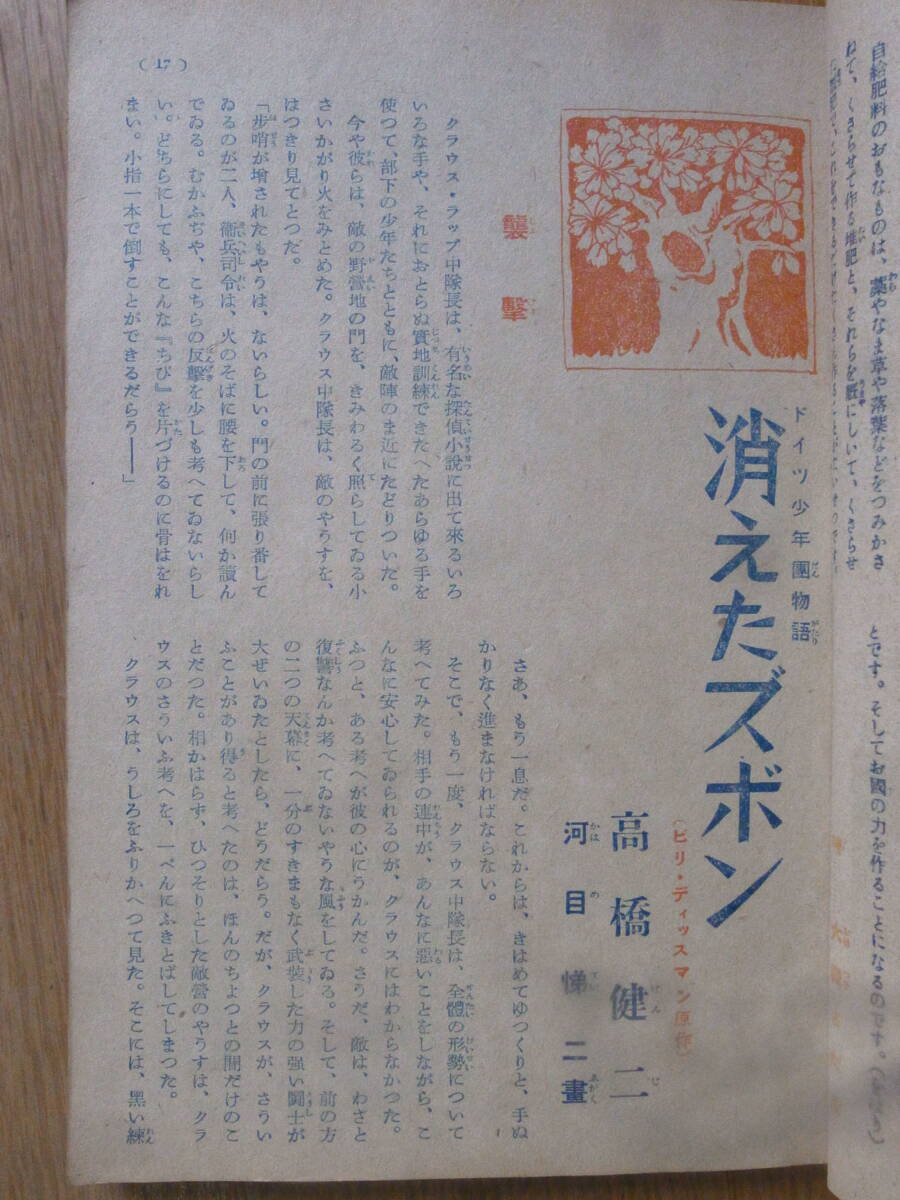 自給肥料のおもなものは、藁やなま草や落葉などをつみかさ
ねて、くさらせて作る堆肥と、それらを厩にしいて、くさらせ
とです。そしてお國の力を作ることになるのです。
ドイツ少年團物語
消えたズボン
(ビリ・ディッスマン原作)
高橋健二
河目悌二畫
襲擊
クラウス・ラップ中隊長は、有名な探偵小說に出て來るいろ
いろな手や、それにおとらぬ實地訓練できたへたあらゆる手を
使つて、部下の少年たちとともに、敵陣のま近にたどりついた。
今や彼らは、敵の野營地の門を、きみわるく照らしてゐる小
さいかがり火をみとめた。クラウス中隊長は、敵のやうすを、
はつきり見てとつた。
「步哨が增されたもやうは、ないらしい。門の前に張り番して
ゐるのが二人、衞兵司令は、火のそばに腰を下して、何か讀ん
でゐる。むかふぢや、こちらの反擊を少しも考へてゐないらし
い。どちらにしても、こんな『ちび』を片づけるのに骨はをれ
まい。小指一本で倒すことができるだらう――」
さあ、もう一息だ。これからは、きはめてゆつくりと、手ぬ
かりなく進まなければならない。
そこで、もう一度、クラウス中隊長は、全體の形勢について
考へてみた。相手の連中が、あんなに惡いことをしながら、こ
んなに安心してゐられるのが、クラウスにはわからなかつた。
ふつと、ある考へが彼の心にうかんだ。さうだ、敵は、わざと
復讐なんか考へてゐないやうな風をしてゐる。そして、前の方
の二つの天幕に、一分のすきまもなく武裝した力の強い鬪士が
大ぜいゐたとしたら、どうだらう。だが、クラウスが、さうい
ふことがあり得ると考へたのは、ほんのちよつとの間だけのこ
とだつた。相かはらず、ひつそりとした敵營のやうすは、クラ
ウスのさういふ考へを、一ぺんにふきとばしてしまつた。
クラウスは、うしろをふりかへつて見た。そこには、黑い練
(17)